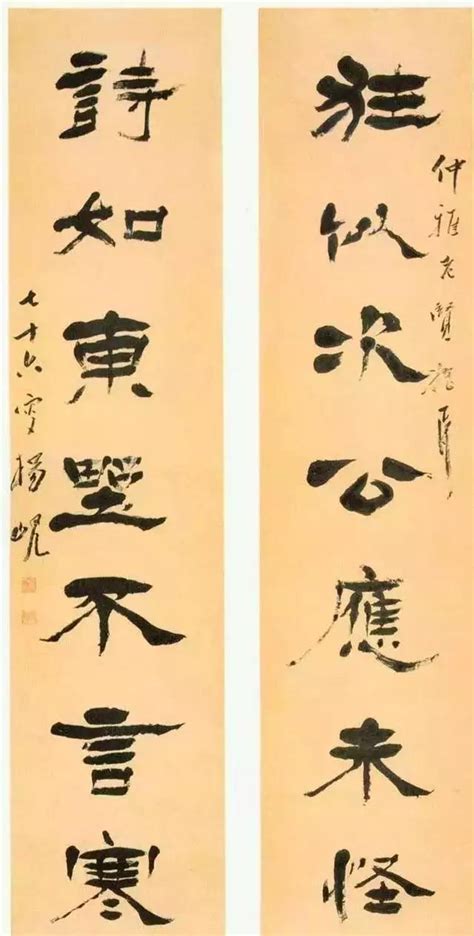 狂似次公應未怪
仲雅老賢
詩如東野不言寒
七十六叟楊峴